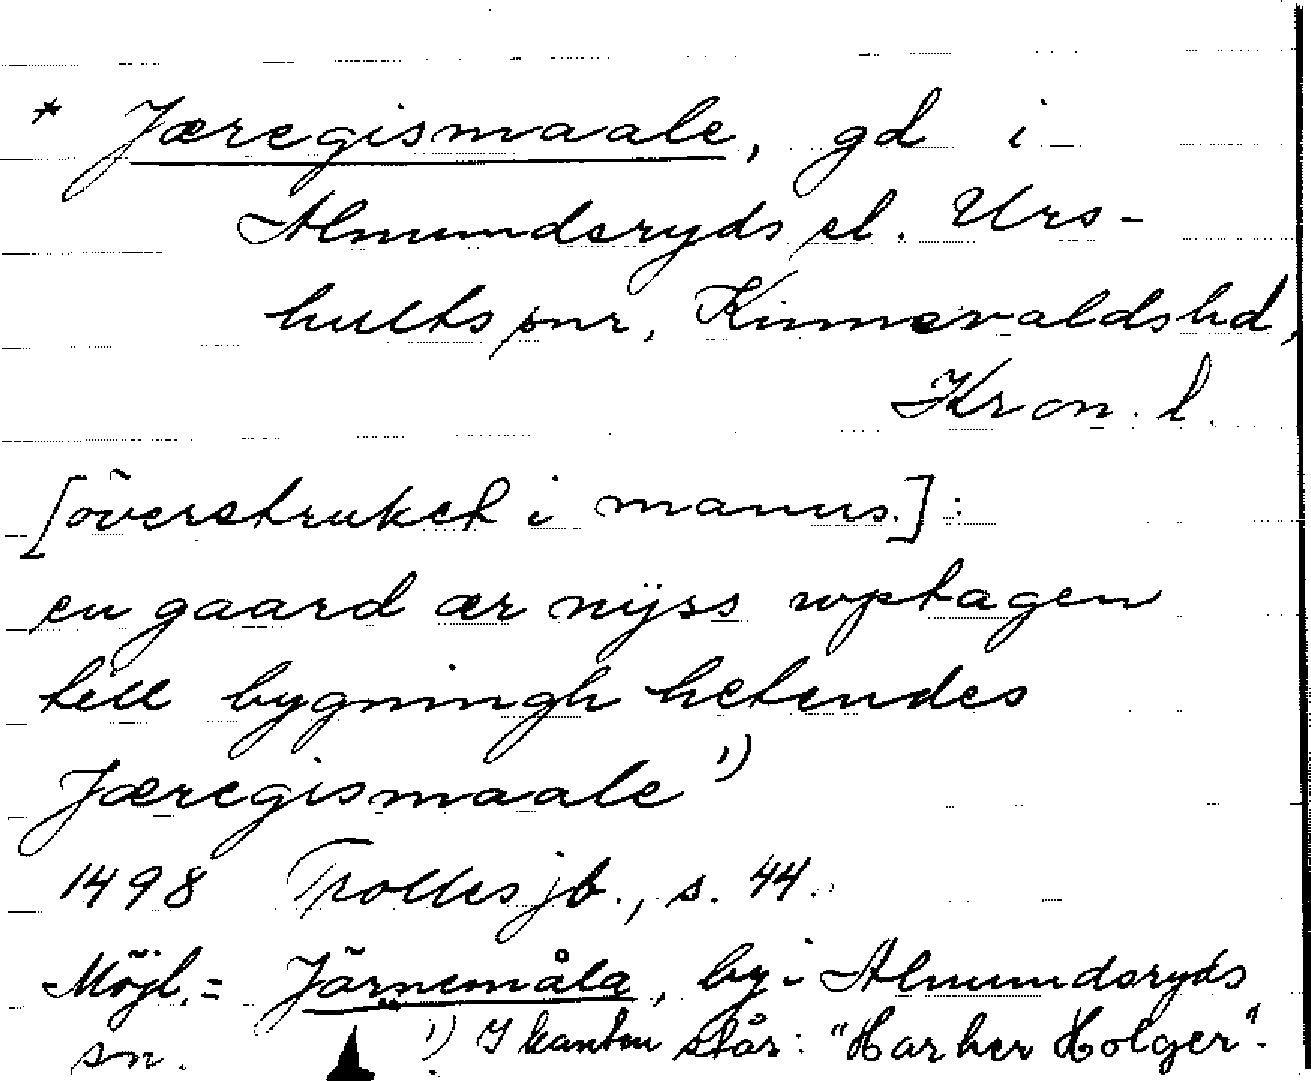 * Jæregismaale, gd i
Almundsryds el. Urs-
hults snr, Kinnevaldshd,
Kron. l.
[överstruket i manus.]:
en gaard ær nyss wptagen
till bygningh hetendes
Jæregismaale 1)
1498 Trolles jb., s. 44.
Möjl. = Järnemåla, by i Almundsryds
sn. 1) I kanten står: "Har her Holger".